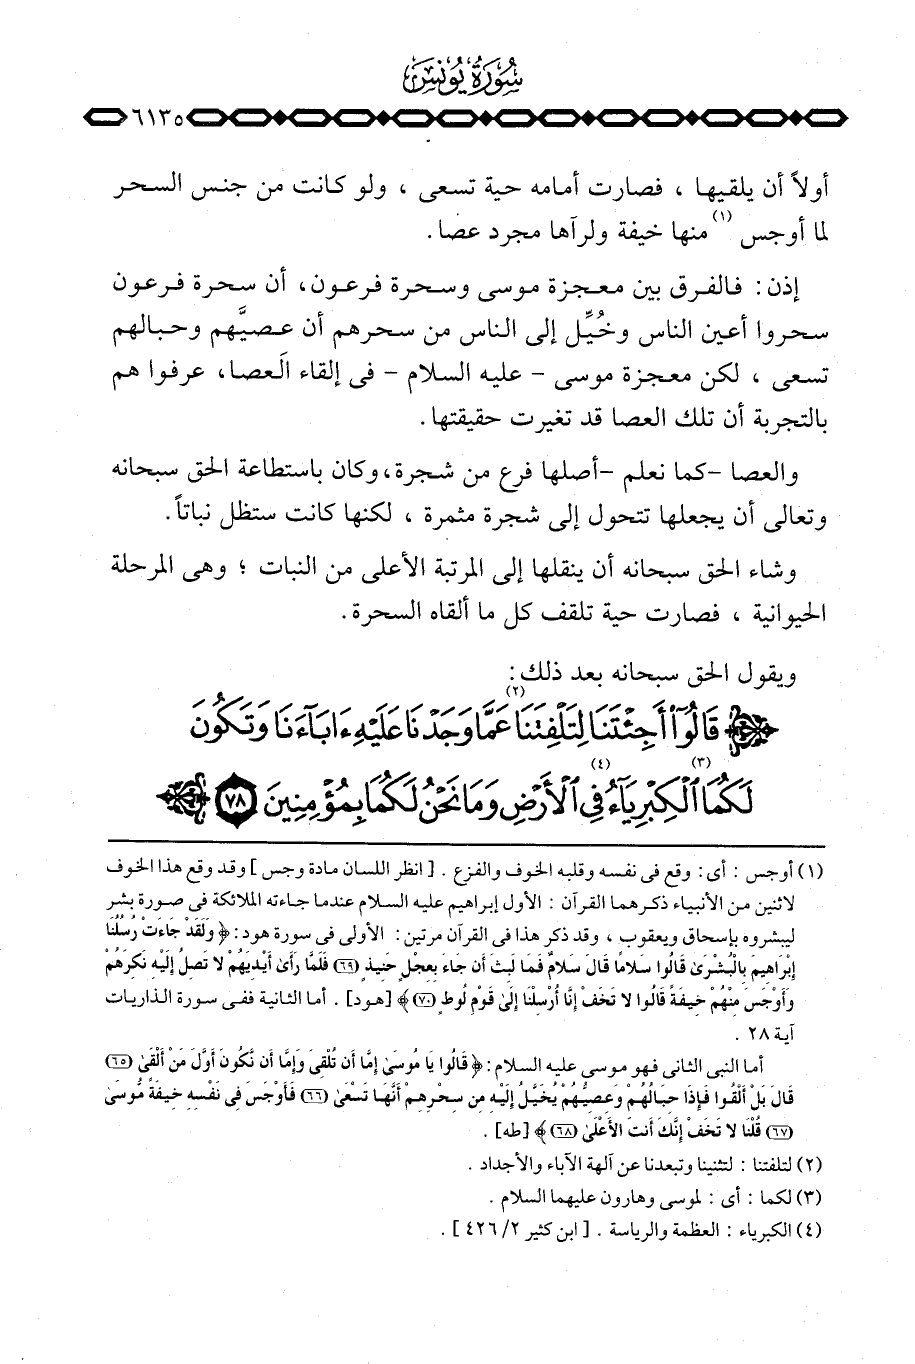 سُورَةُ يُونُسَ
٦١٣٥
أولاً أن يلقيها ، فصارت أمامه حية تسعى ، ولو كانت من جنس السحر
لما أوجس (١) منها خيفة ولرآها مجرد عصا.
إذن: فالفرق بين معجزة موسى وسحرة فرعون، أن سحرة فرعون
سحروا أعين الناس وخُيِّل إلى الناس من سحرهم أن عصيَّهم وحبالهم
تسعى ، لكن معجزة موسى - عليه السلام - فى إلقاء العصا، عرفوا هم
بالتجربة أن تلك العصا قد تغيرت حقيقتها.
والعصا -كما نعلم -أصلها فرع من شجرة، وكان باستطاعة الحق سبحانه
وتعالى أن يجعلها تتحول إلى شجرة مثمرة ، لكنها كانت ستظل نباتاً.
وشاء الحق سبحانه أن ينقلها إلى المرتبة الأعلى من النبات ؛ وهى المرحلة
الحيوانية ، فصارت حية تلقف كل ما ألقاه السحرة.
ويقول الحق سبحانه بعد ذلك:
قَالُوٓا۟ أَجِئْتَنَا لِتَلْفِتَنَا (٢) عَمَّا وَجَدْنَا عَلَيْهِ ءَابَآءَنَا وَتَكُونَ
لَكُمَا (٣) ٱلْكِبْرِيَآءُ (٤) فِى ٱلْأَرْضِ وَمَا نَحْنُ لَكُمَا بِمُؤْمِنِينَ ٧٨
(١) أوجس : أى: وقع فى نفسه وقلبه الخوف والفزع . [ انظر اللسان مادة وجس ] وقد وقع هذا الخوف
لاثنين من الأنبياء ذكرهما القرآن : الأول إبراهيم عليه السلام عندما جاءته الملائكة فى صورة بشر
ليبشروه بإسحاق ويعقوب ، وقد ذكر هذا فى القرآن مرتين: الأولى فى سورة هود: ﴿ وَلَقَدْ جَاءَتْ رُسُلُنَا
إِبْرَاهِيمَ بِالْبُشْرَىٰ قَالُوا سَلَامًا قَالَ سَلَامٌ فَمَا لَبِثَ أَن جَاءَ بِعِجْلٍ حَنِيذٍ (٦٩) فَلَمَّا رَأَىٰ أَيْدِيَهُمْ لَا تَصِلُ إِلَيْهِ نَكِرَهُمْ
وَأَوْجَسَ مِنْهُمْ خِيفَةً قَالُوا لَا تَخَفْ إِنَّا أُرْسِلْنَا إِلَىٰ قَوْمِ لُوطٍ (٧٠) ﴾ [هود] . أما الثانية ففى سورة الذاريات
آية ٢٨ .
أما النبى الثانى فهو موسى عليه السلام: ﴿ قَالُوا يَا مُوسَىٰ إِمَّا أَن تُلْقِيَ وَإِمَّا أَن نَّكُونَ أَوَّلَ مَنْ أَلْقَىٰ (٦٥)
قَالَ بَلْ أَلْقُوا فَإِذَا حِبَالُهُمْ وَعِصِيُّهُمْ يُخَيَّلُ إِلَيْهِ مِن سِحْرِهِمْ أَنَّهَا تَسْعَىٰ (٦٦) فَأَوْجَسَ فِي نَفْسِهِ خِيفَةً مُّوسَىٰ
(٦٧) قُلْنَا لَا تَخَفْ إِنَّكَ أَنتَ الْأَعْلَىٰ (٦٨) ﴾ [طه] .
(٢) لتلفتنا : لتثنينا وتبعدنا عن آلهة الآباء والأجداد .
(٣) لكما : أى : لموسى وهارون عليهما السلام .
(٤) الكبرياء : العظمة والرياسة . [ ابن كثير ٢/ ٤٢٦ ] .